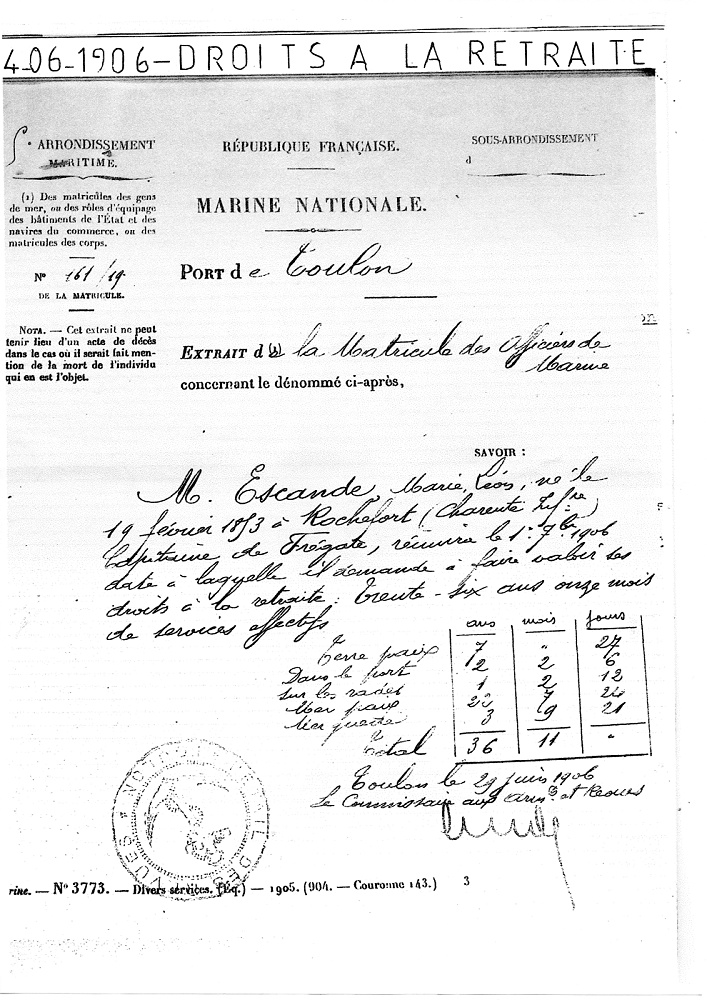 4-06-1906-DROITS A LA RETRAITE
5e ARRONDISSEMENT
MARITIME.
(1) Des matricules des gens
de mer, ou des rôles d'équipage
des bâtiments de l'État et des
navires du commerce, ou des
matricules des corps.
N° 161/19
DE LA MATRICULE.
NOTA. — Cet extrait ne peut
tenir lieu d'un acte de décès
dans le cas où il serait fait men-
tion de la mort de l'individu
qui en est l'objet.
RÉPUBLIQUE FRANÇAISE.
MARINE NATIONALE.
PORT de Toulon
SOUS-ARRONDISSEMENT
d
EXTRAIT d (1) la Matricule des Officiers de
Marine
concernant le dénommé ci-après,
SAVOIR :
M. Escande, Marie, Léon, né le
19 février 1853 à Rochefort (Charente Infre)
Capitaine de Frégate, réunira le 1er 7bre 1906
date à laquelle il demande à faire valoir ses
droits à la retraite : Trente-six ans onze mois
de services effectifs
ans mois jours
Terre paix 7 " 27
Dans le port 2 2 6
Sur les rades 1 2 12
Mer paix 7 24
Mer guerre 3 9 21
Total 36 11 "
Toulon le 29 juin 1906
Le Commissaire aux Armts et Revues
rine. — N° 3773. — Divers services. (Éq.) — 1905. (904. — Couronne 143.) 3